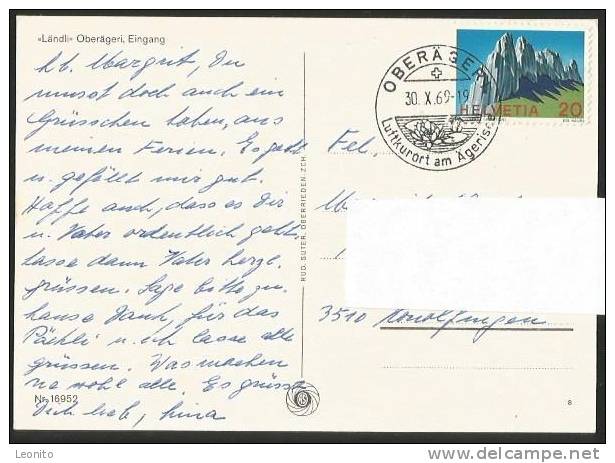 «Ländli» Oberägeri, Eingang
Lb. Margrit, Du
musst doch auch ein
Grüsschen haben, aus
meinen Ferien. Es geht
u. gefällt mir gut.
Hoffe auch, dass es Dir
u. Vater ordentlich geht,
lasse dann Vater herzl.
grüssen. Sage bitte zu-
hause Dank, für das
Päckli u. ich lasse alle
grüssen. Was machen
sie wohl alle. Es grüsst
Dich lieb,
Nr. 16952
RUD. SUTER, OBERRIEDEN-ZCH.
OBERÄGERI
30.X.69-19
Luftkurort am Ägerisee
HELVETIA 20
Frl.
3510 Konolfingen
8
Leonito
www.delcampe.net